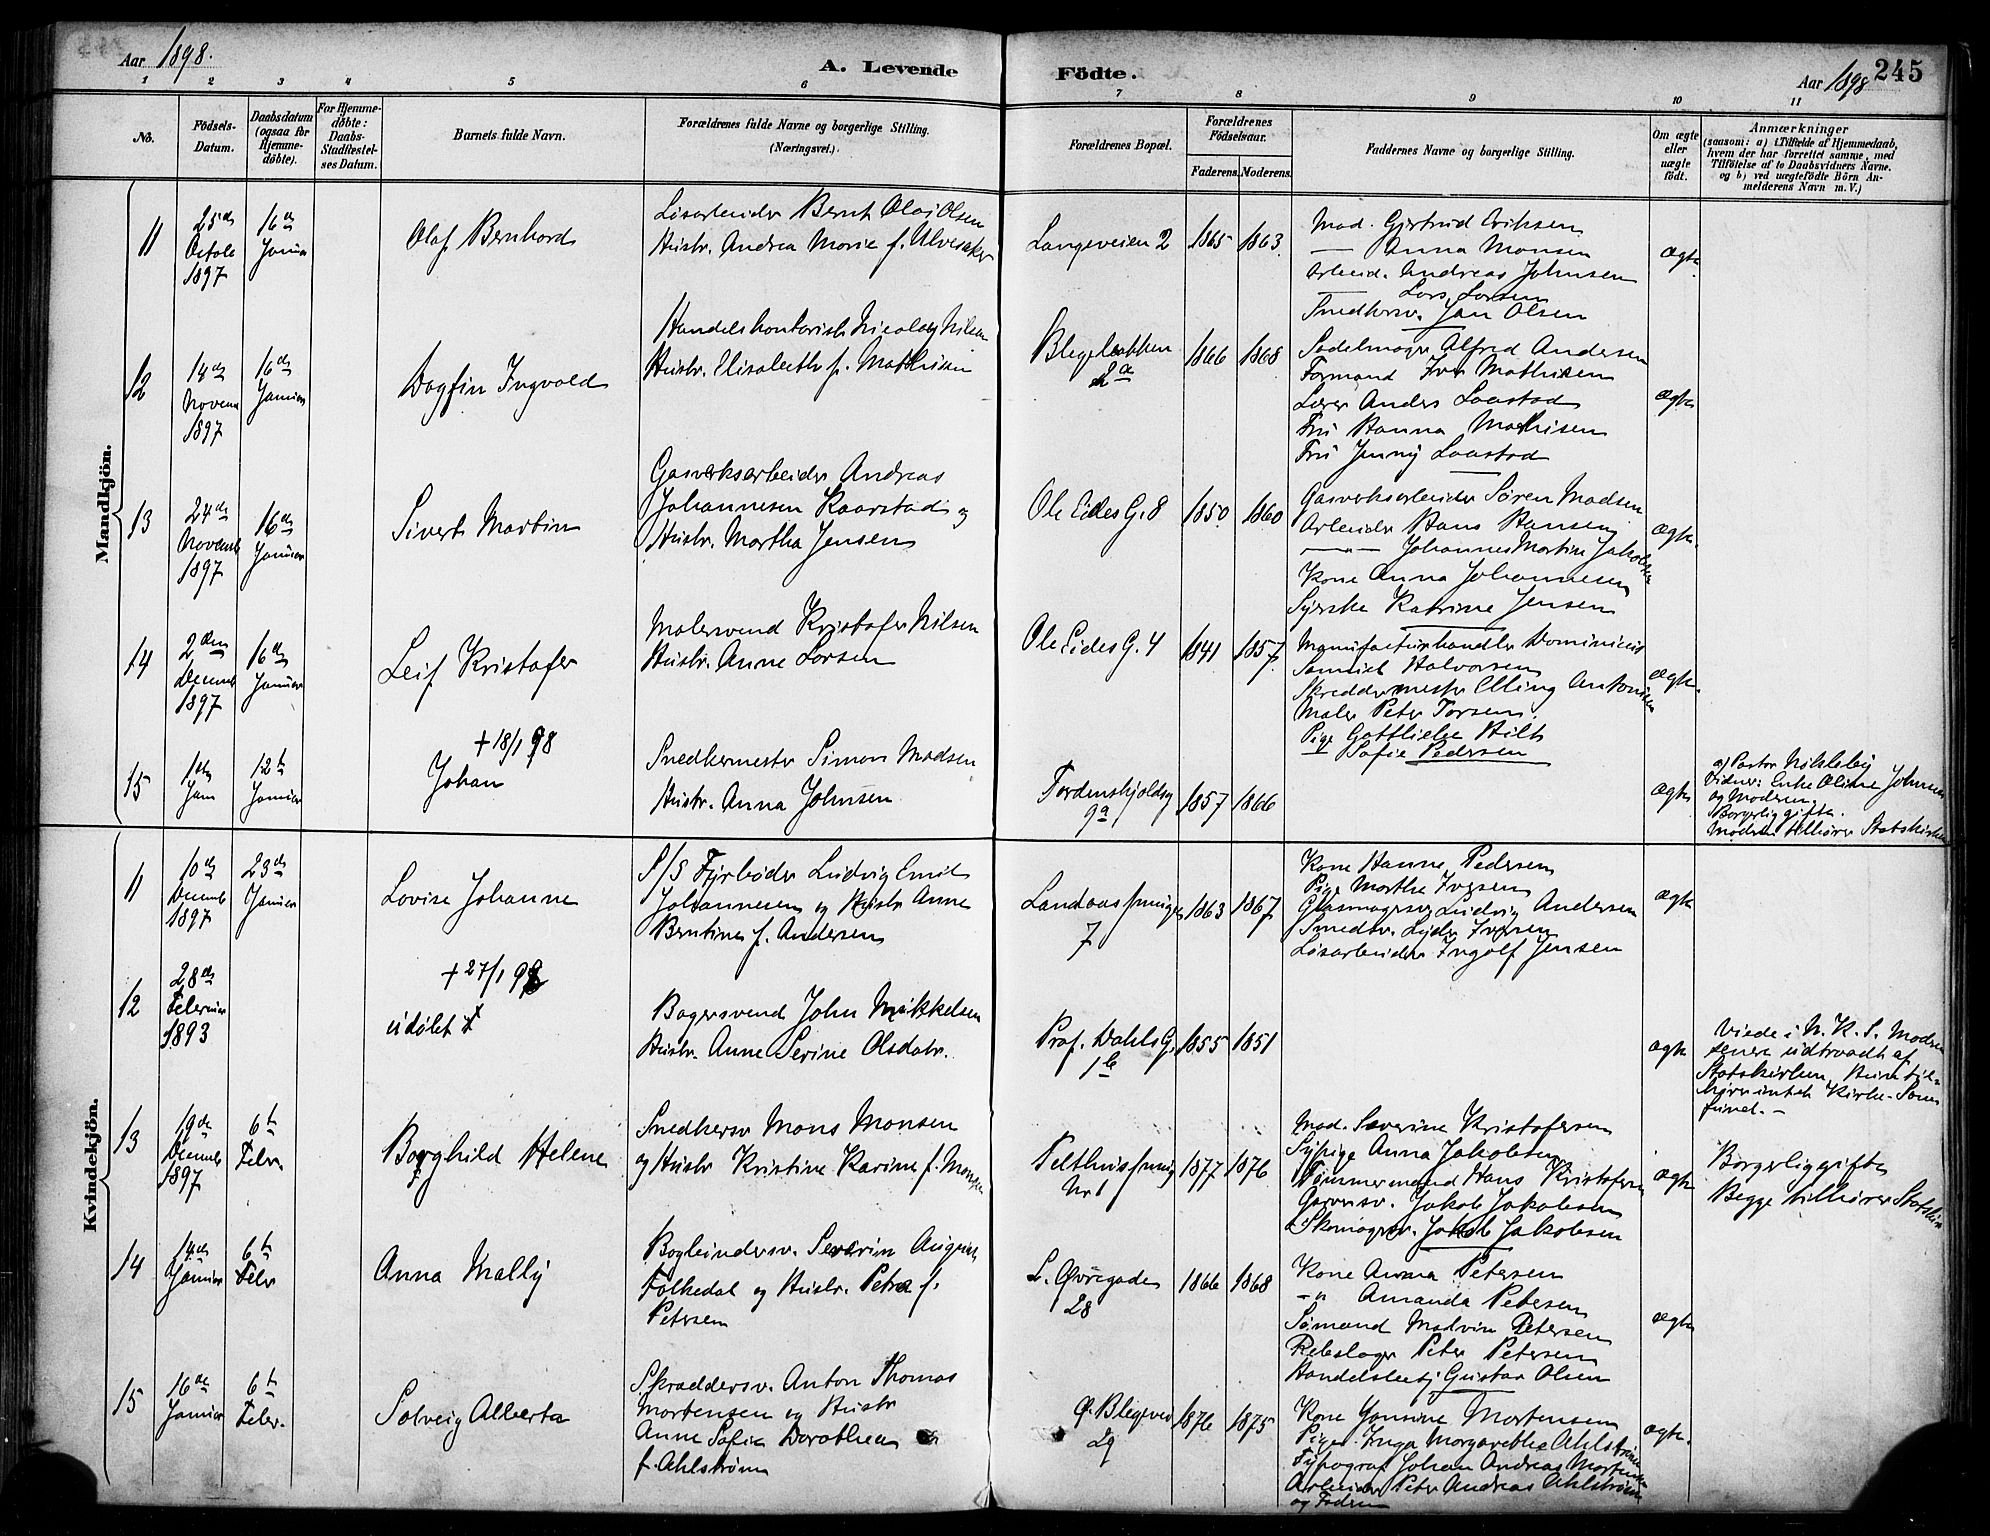 Aar 1898.
A. Levende Födte.
Aar 1898 245
1 2 3 4 5 6 7 8 9 10 11
No.
Födsels-
Datum.
Daabsdatum
(ogsaa for
Hjemme-
døbte).
For Hjemme-
døbte:
Daabs-
Stadfæstel-
ses Datum.
Barnets fulde Navn.
Forældrenes fulde Navne og borgerlige Stilling.
(Næringsvei.)
Forældrenes Bopæl.
Forældrenes
Födselsaar.
Faderens. Moderens.
Faddernes Navne og borgerlige Stilling.
Om ægte
eller
uægte
født.
Anmærkninger
(saasom: a) i Tilfælde af Hjemmedaab,
hvem der har forrettet samme, med
Tilføielse af to Daabsvidners Navne.
og b) ved uægtefødte Börn An-
melderens Navn m. V.)
Mandkjön.
11
25de
Octob
1897
16de
Januar
Olaf Bernhard
Løsarbeider Bernt Olai Olsen
Hustr. Andrea Marie f. Ulvesaker
Langeveien 2
1865 1863
Mad. Gjertrud Eriksen
— Anna Monsen
Arbeid. Andreas Johnsen
— Lars Larsen
Snedkersv. Jan Olsen
Ægte
12
14de
Novem
1897
16de
Januar
Dagfin Ingvald
Handelskontorist Nicolay Nilsen
Hustr. Elisabeth f. Mathisen
Blegebakken
2a
1866 1868
Sadelmager Alfred Andersen
Formand Iver Mathisen
Lærer Anders Laastad
Fru Hanna Mathisen
Fru Jenny Laastad
Ægte
13
24de
Novemb
1897
16de
Januar
Sivert Martin
Gasverksarbeider Andreas
Johannesen Kaarstad og
Hustr. Martha Jensen
Ole Eides G. 8
1850 1860
Gasverksarbeider Søren Madsen
Arbeider Hans Hansen
—"— Johannes Martin Jakobsen
Kone Anna Johannesen
Syerske Katrine Jensen
Ægte
14
2den
Decemb
1897
16de
Januar
Leif Kristofer
Malersvend Kristofer Nilsen
Hustr. Anne Larsen
Ole Eides G. 4
1841 1857
Manufacturhandler Dominicus
Samuel Halvorsen
Skreddermester Elling Antonisen
Maler Peter Torsen
Pige Gottliebe Hilt
— Sofie Pedersen
Ægte
15
1ste
Jan
12te
Januar
+18/1 98
Johan
Snedkermester Simon Madsen
Hustr. Anna Johnsen
Tordenskjoldsg
9a
1857 1866
Ægte
a) Pastor Nikleby
Vidner: Enke Oline Johnsen
og Moderen.
Borgerlig gifte.
Moderen tilhører Statskirken
Kvindekjön.
11
10de
Decemb
1897
23de
Januar
Lovise Johanne
S/S Fyrbøder Ludvig Emil
Johannesen og Hustr Anne
Berntine f. Andersen
Landaas smuget
7
1863 1867
Kone Hanne Pedersen
Pige Marthe Iversen
Glasmagersv Ludvig Andersen
Smedsv. Lyder Iversen
Løsarbeider Ingolf Jensen
Ægte
12
28de
Februar
1893
+27/1 98
udøbt
Bagersvend John Mikkelsen
Hustr. Anne Serine Olsdatr.
Prof. Dahls G.
1b
1855 1851
Ægte
Viede i N. K. S. Moder
senere udtraadt af
Statskirken, Barn til-
hører intet Kirke-Sam-
fund. —
13
19de
Decemb
1897
6te
Febr
Borghild Helene
Snedkersv Mons Monsen
og Hustr Kristine Karine f. Monsen
Pelthus smug
Nr 1
1877 1876
Mad. Severine Kristofersen
Sypige Anna Jakobsen
Tømmermand Hans Kristofersen
Garversv. Jakob Jakobsen
Skomagersv. Jakob Jakobsen
Ægte
Borgerlig gifte
Begge tilhører Statskirk
14
14de
Januar
6te
Febr
Anna Mally
Bogbindersv. Severin August
Folkedal og Hustr. Petra f.
Petersen
L. Øvregade
28
1866 1868
Kone Anna Petersen
—"— Amanda Petersen
Sømand Madvin Petersen
Rebslager Peter Petersen
Handelsbetj Gustav Olsen
Ægte
15
16de
Januar
6te
Febr.
Solveig Alberta
Skræddersv. Anton Thomas
Mortensen og Hustr
Anne Sofie Dorothea
f. Ahlstrøm
Ø. Blegevei
29
1876 1875
Kone Jonsine Mortensen
Pige Inga Margarethe Ahlstrøm
Typograf Johan Andreas Mortensen
Arbeider Peter Andreas Ahlstrøm
og Faderen
Ægte.